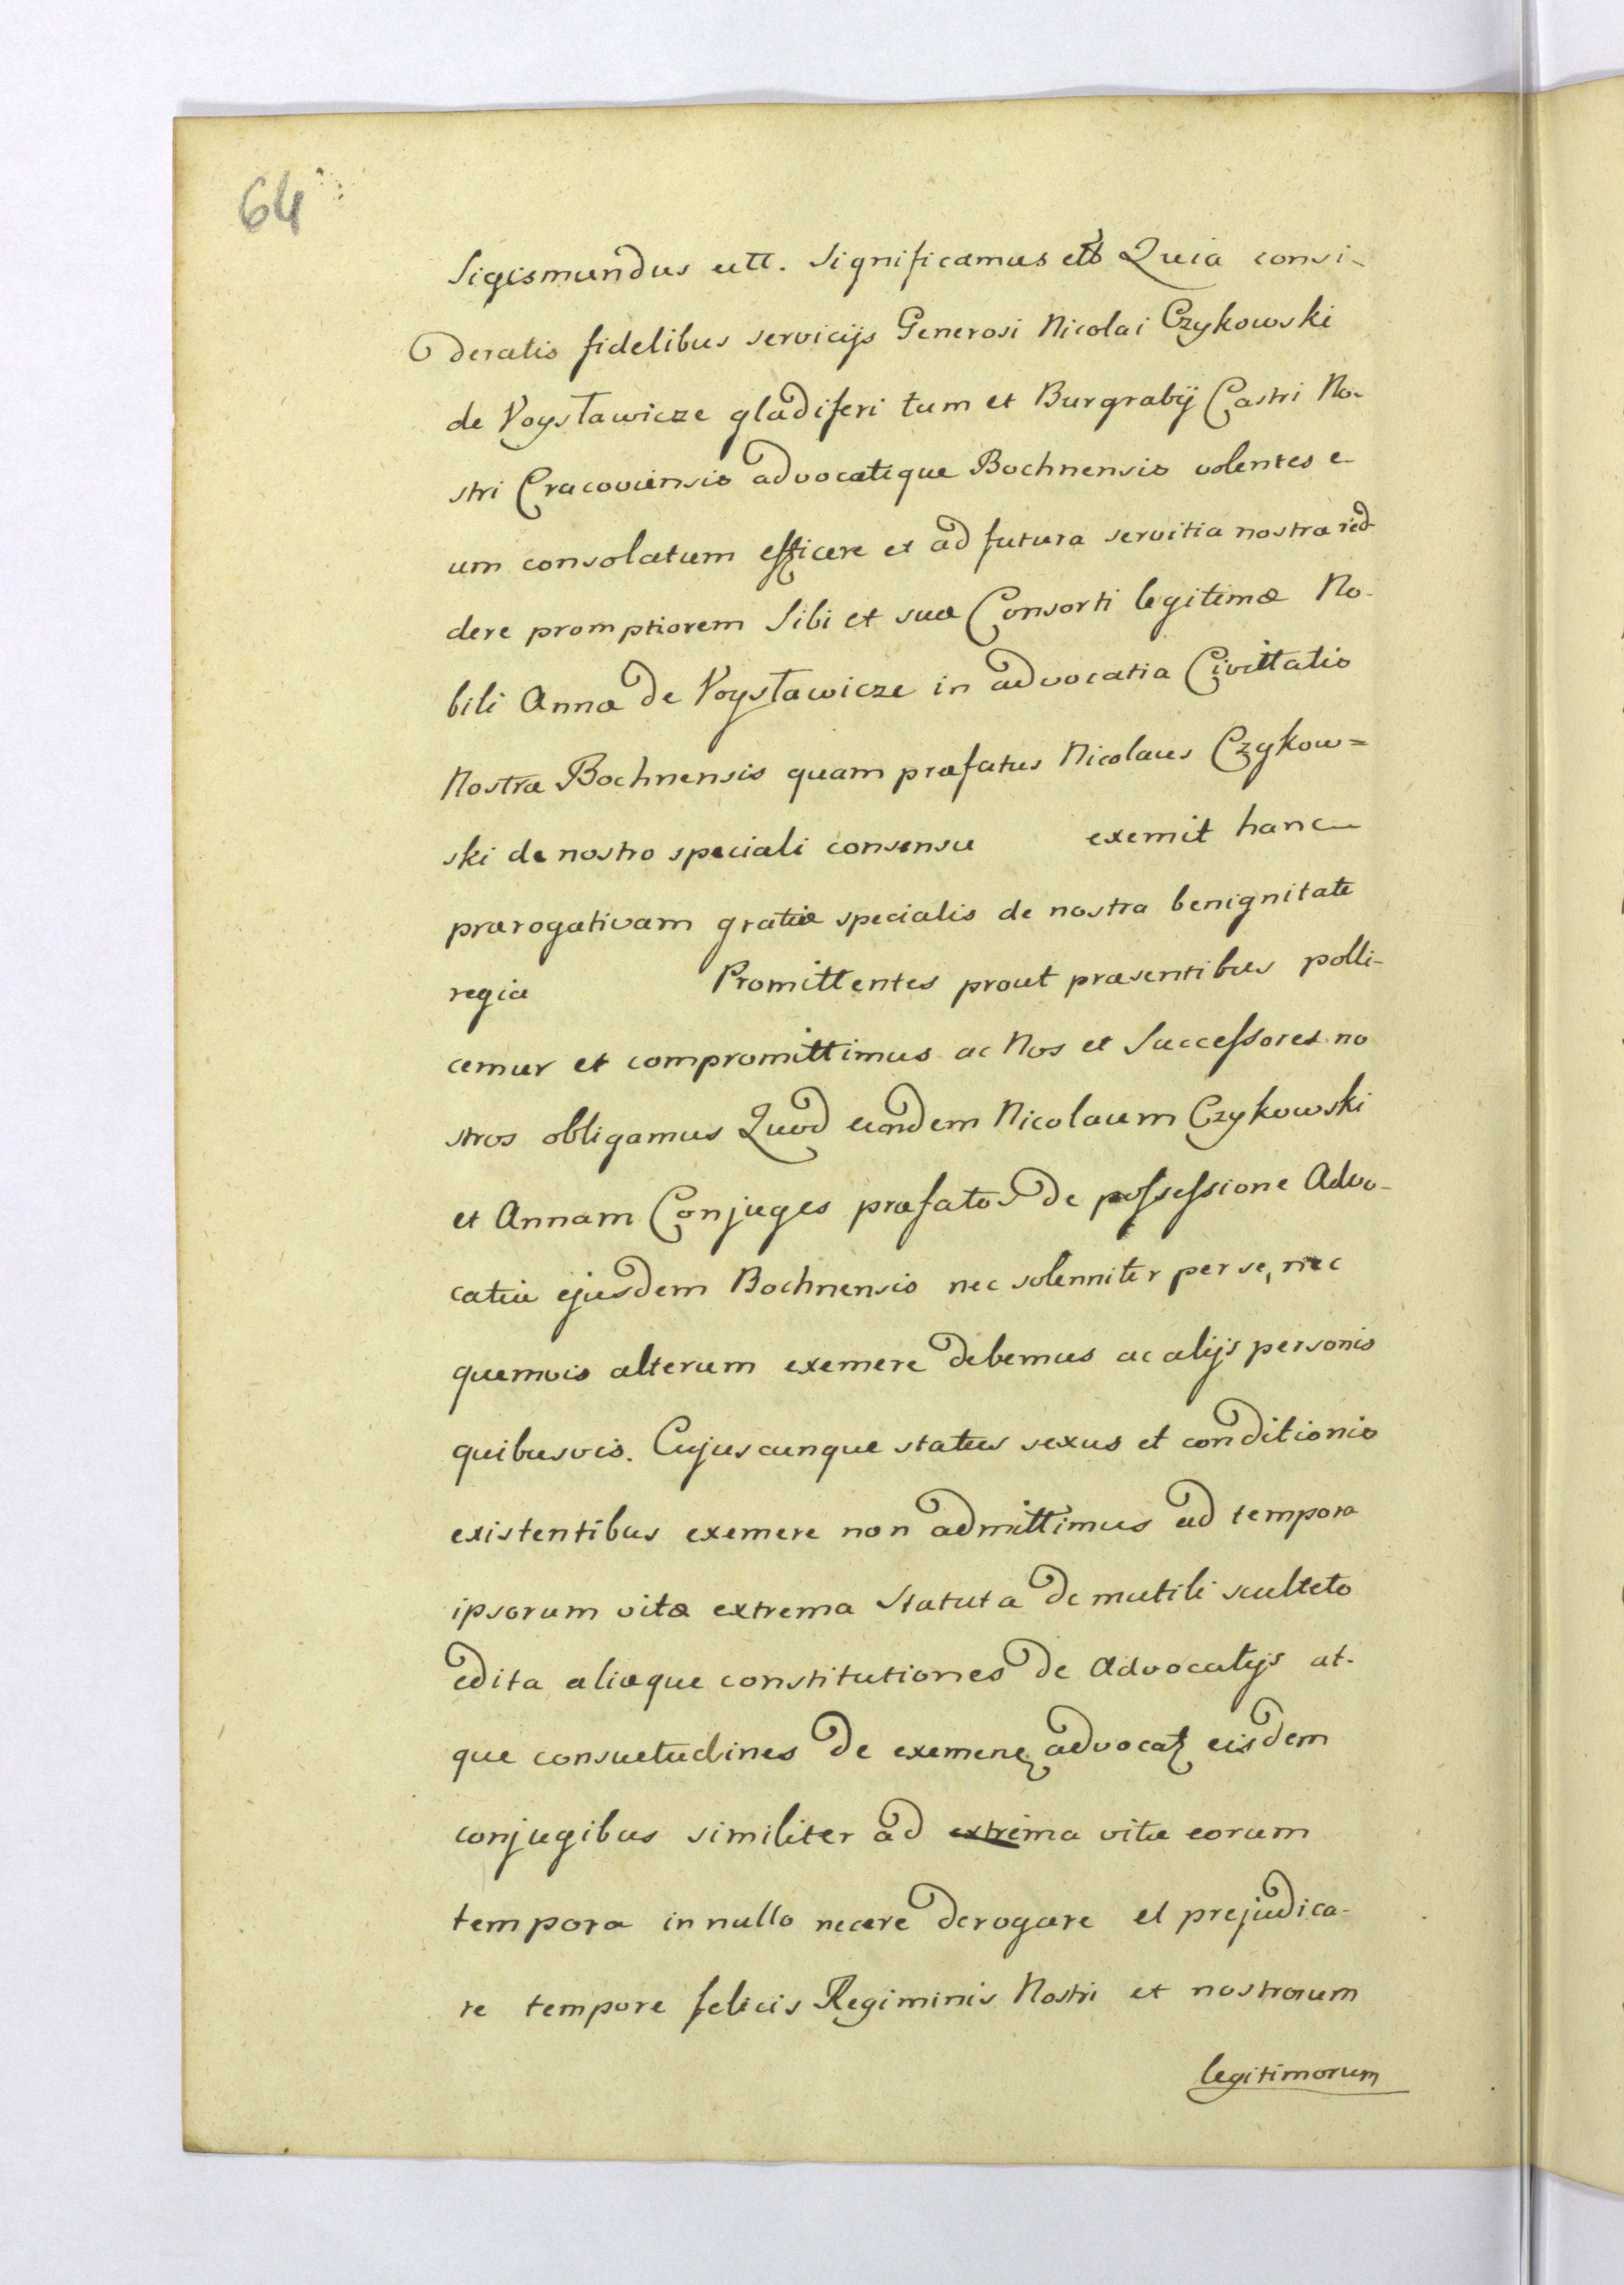 64
Sigismundus utt. Significamus ettb Quia consi-
deratis fidelibus servicijs Generosi Nicolai Czykowski
de Voysławicze gladiferi tum et Burgrabÿ Castri No-
stri Cracoviensis advocatique Bochnensis volentes e-
um consolatum efficere et ad futura servitia nostra red
dere promptiorem Sibi et suæ Consorti legitimæ No-
bili Annæ de Voysławicze in advocatia Civittatis
Nostræ Bochnensis quam præfatus Nicolaus Czykow=
ski de nostro speciali consensu exemit hanc
prærogativam gratiæ specialis de nostra benignitate
regia Promittentes prout præsentibus polli-
cemur et compromittimus ac Nos et Successores no
stros obligamus Quod eundem Nicolaum Czykowski
et Annam Conjuges præfatos de possessione Advo-
catiæ ejusdem Bochnensis nec solenniter per se, nec
quemvis alterum exemere debemus ac alijs personis
quibusvis. Cujuscunque status sexus et conditionis
existentibus exemere non admittimus ad tempora
ipsorum vitæ extrema Statuta de mutili sculteto
edita aliæque constitutiones de Advocatijs at-
que consuetudines de exemene advocat eisdem
conjugibus similiter ad extrema vitæ eorum
tempora in nullo necere derogare et prejudica-
re tempore felicis Regiminis Nostri et nostrorum
legitimorum